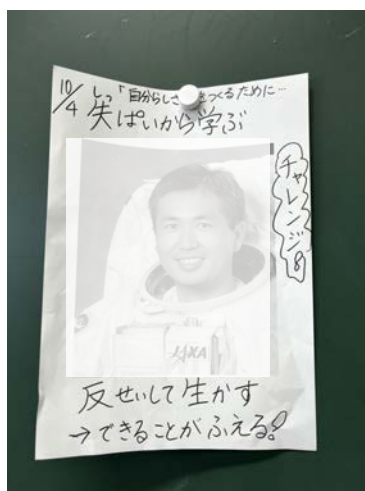 10/4 「自分らしさ」をつくるために…
失ぱいから学ぶ
しっ
チャレンジ
JAXA
反せいして生かす
→できることがふえる!